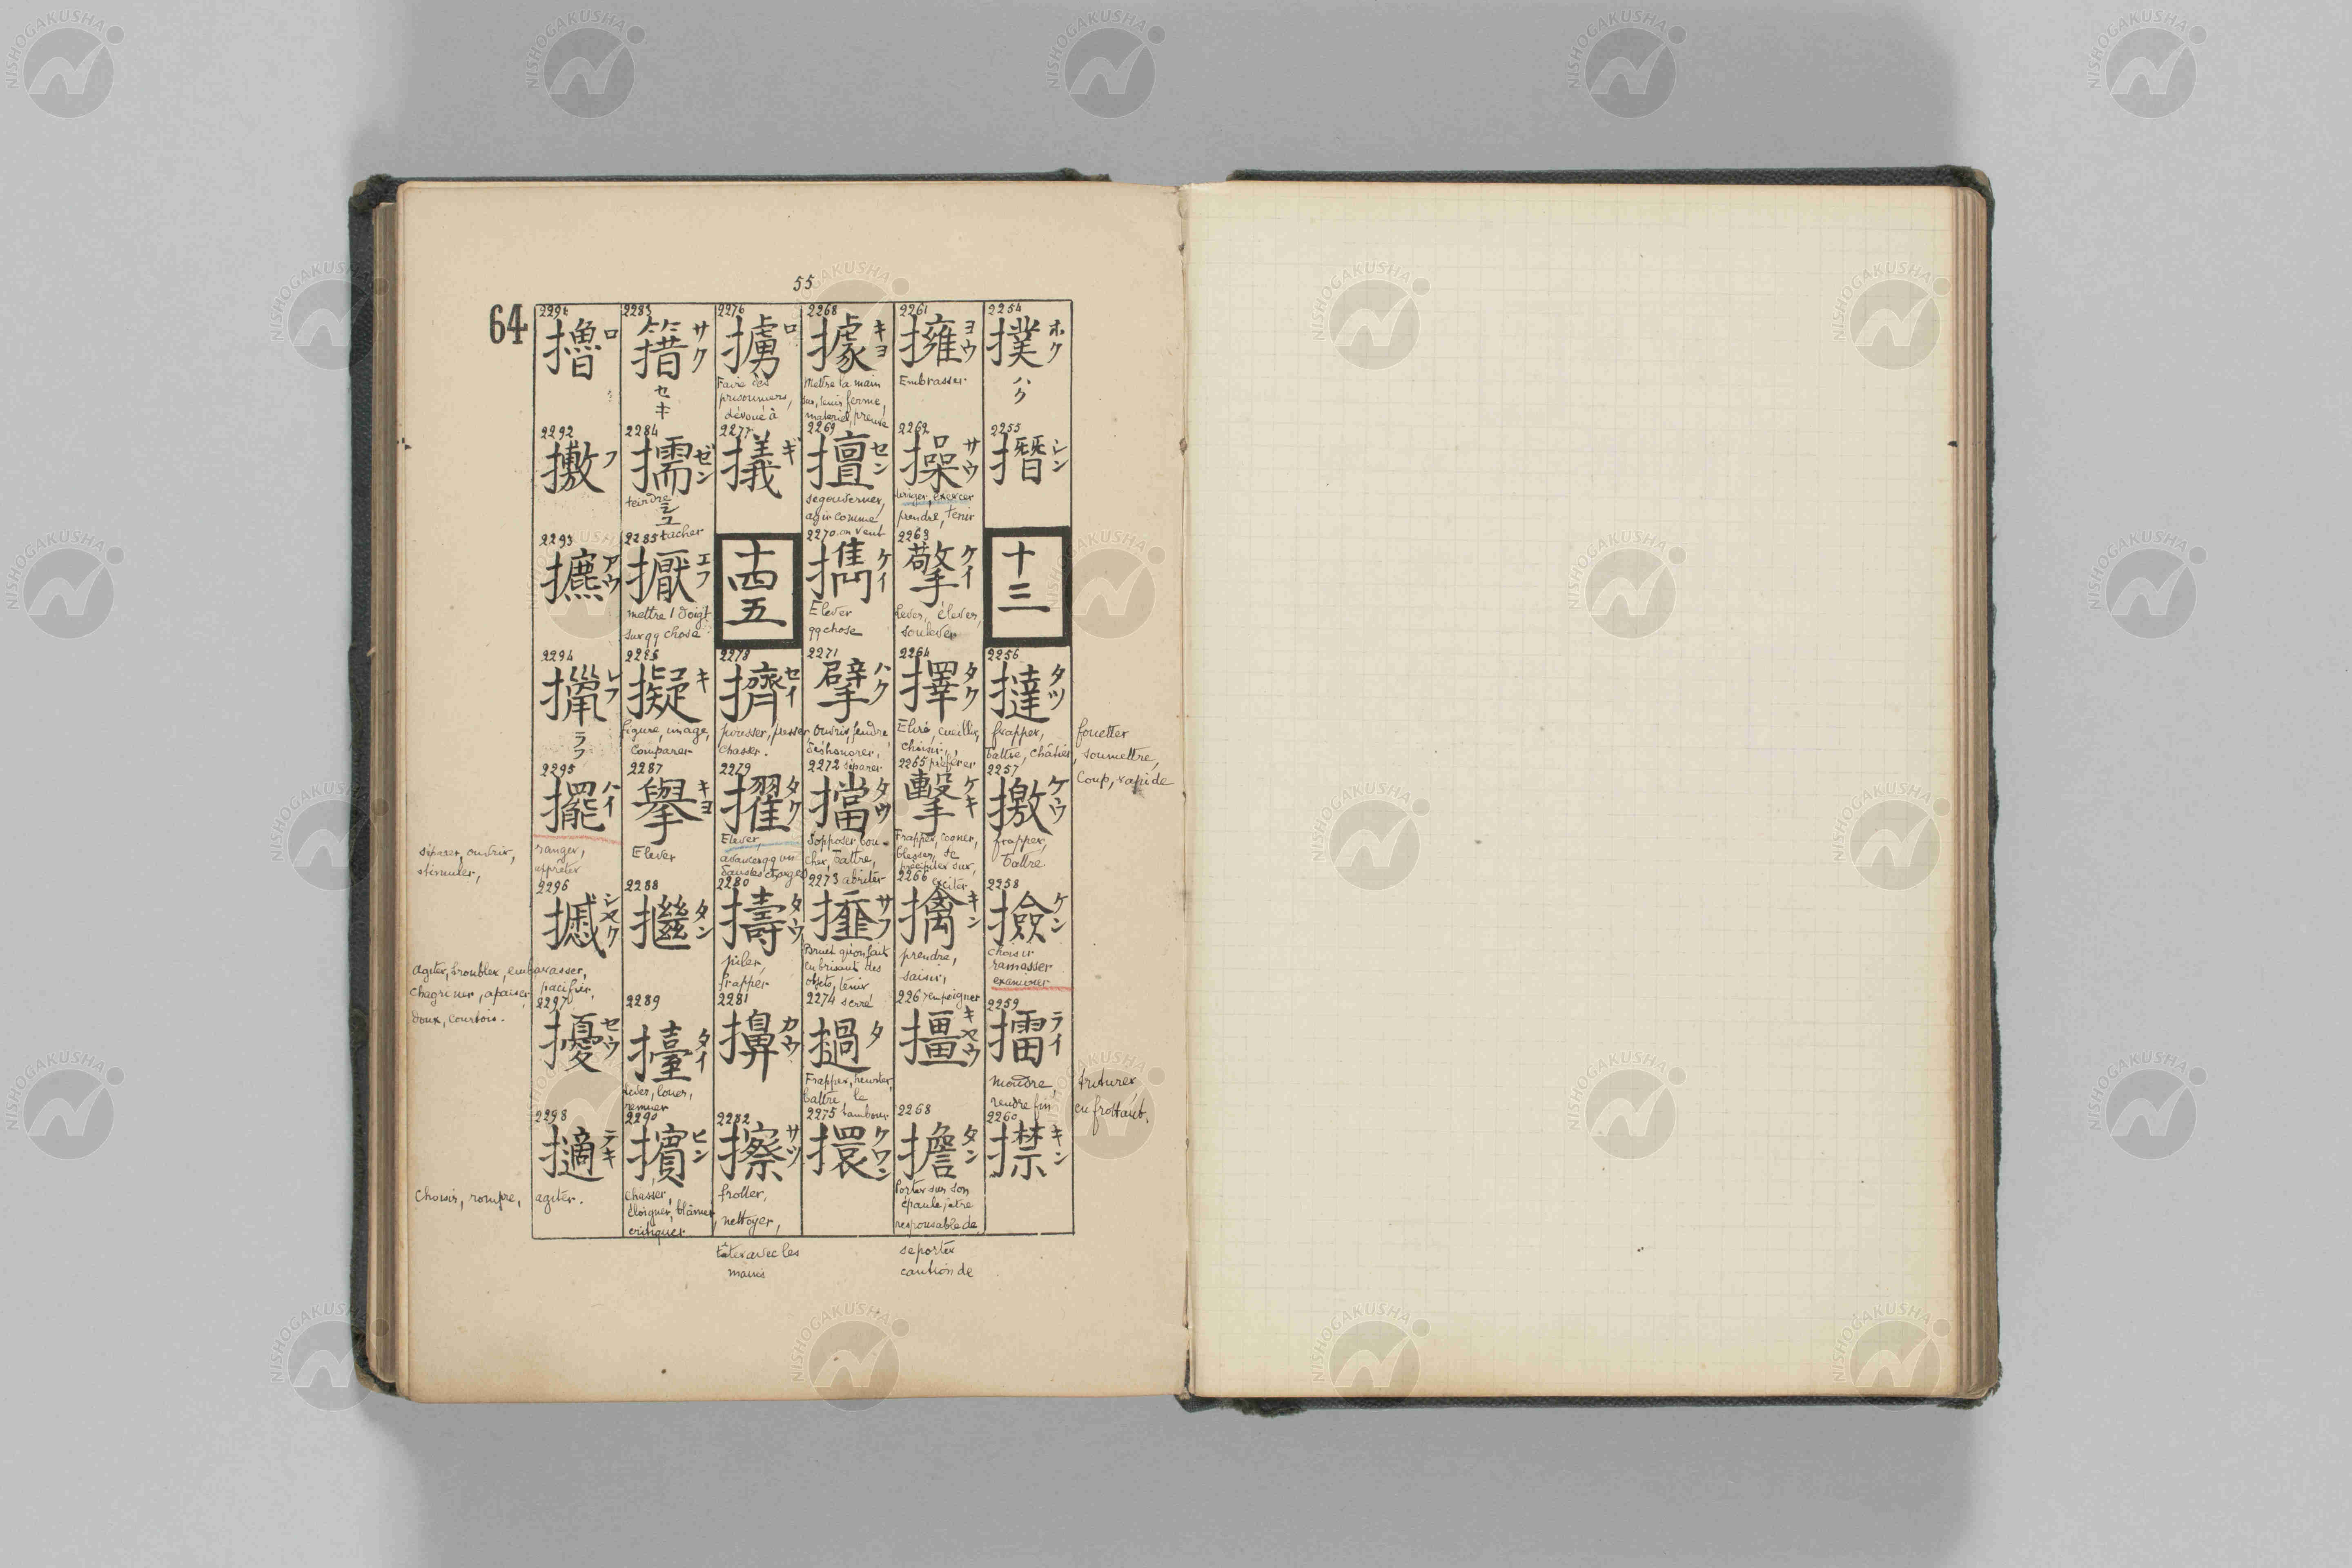 55
64
2254
撲 ホク
ハク
2255
撍 シン
十三
2256
撻 タツ
frapper,
battre, châtier, soumettre,
fouetter
Coup, rapide
2257
撽 ケウ
frapper,
battre
2258
撿 ケン
choisir
ramasser
examiner
2259
擂 ライ
moudre, triturer
rendre fin en frottant.
2260
擛 キン
2261
擁 ヨウ
Embrasser
2262
操 サウ
exercer
prendre, tenir
2263
擎 ケイ
Lever, élever,
soulever
2264
擇 タク
Eliré, cueillir,
choisir,
2265 préférer
擊 ケキ
Frapper, cogner,
blesser, se
précipiter sur,
2266 exciter
擒 キン
prendre,
saisir,
2267 empoigner
橿 キヤウ
2268
擔 タン
Porter sur son
épaule, être
responsable de
se porter
caution de
2268
據 キヨ
Mettre la main
sur, tenir ferme,
materiel, preuve
2269
擅 セン
se gouverner,
agir comme
2270 on veut
擕 ケイ
Elever
qq chose
2271
擘 ハク
ouvrir, fendre
déshonorer,
2272 séparer
擋 タウ
S'opposer, bou-
cher, battre,
2273 abriter
サフ
Bruit qu'on fait
en brisant des
objets, tenir
2274 serré
撾 タ
Frapper, heurter,
battre le
2275 tambour
擐 クワン
2276
擄 ロ
Faire des
prisonniers,
dévoué à
2277
㩘 ギ
十四五
2278
擠 セイ
pousser, presser,
chasser.
2279
擢 タク
Elever,
avancer qq un
dans les charges
2280
擣 タウ
piler,
frapper
2281
擤 カウ
2282
擦 サツ
frotter,
nettoyer,
tâter avec les
mains
2283
籍 サク
セキ
2284
擩 ゼン
teindre
シユ
2285 tacher
擫 エフ
mettre 1 doigt
sur qq chose
2286
擬 キ
figure, image,
Comparer
2287
擧 キヨ
Elever
2288
タン
2289
擡 タイ
Lever, louer,
remuer
2290
擯 ヒン
chasser,
éloigner, blâmer,
critiquer
2291
擼 ロ
2292
擻 フ
2293
アウ
2294
擸 レフ
ラフ
2295
擺 ハイ
ranger,
apprêter
séparer, ouvrir,
stimuler,
2296
シヤク
2297
擾 セウ
agiter, troubler, embarasser,
chagriner, apaiser, pacifier,
doux, courtois.
2298
擿 テキ
Choisir, rompre, agiter.
NISHOGAKUSHA